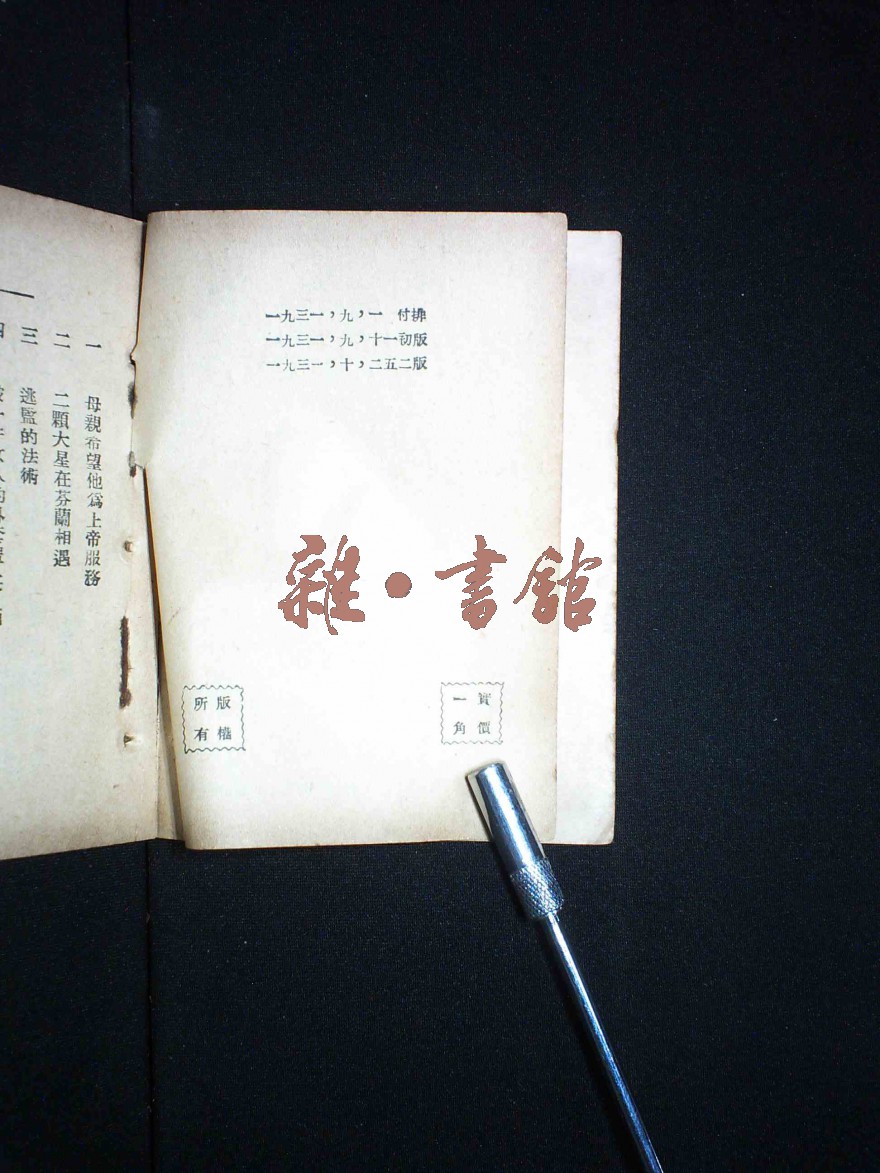 一九三一，九，一　付排
一九三一，九，十一初版
一九三一，十，二五二版
雜●書館
實價
一角
版權
所有
一　母親希望他爲上帝服務
二　二顆大星在芬蘭相遇
三　逃監的法術
四